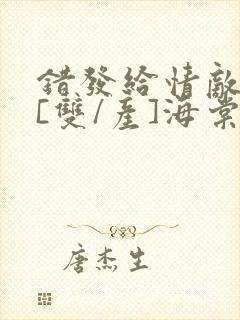 錯發給情敵
[雙/產]海棠
唐杰生